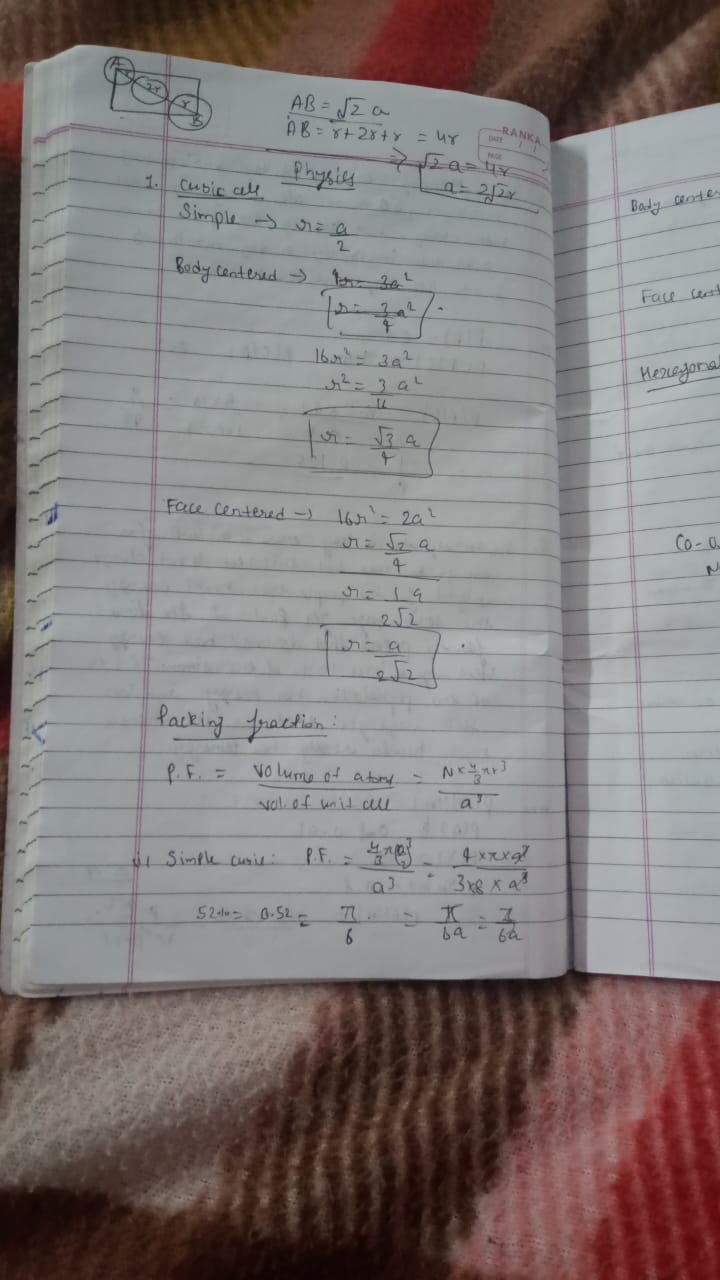 A
2r
r
B
AB = √2 a
AB = r + 2r + r = 4r
⇒ √2 a = 4r
a = 2√2r
RANKA
DATE / /
PAGE
Physics
1. Cubic cell
Simple → r = a/2
Body centered → 4r = 3a²
r = 3/4 a²
16r² = 3a²
r² = 3/16 a²
r = √3/4 a
Face centered → 16r² = 2a²
r = √2/4 a
r = 1/2√2 a
r = a/2√2
Packing fraction:
P.F. = Volume of atoms/vol. of unit cell = N × 4/3 πr³/a³
Simple cubic: P.F. = 4/3 π(a/2)³/a³ = 4 × π × a³/3×8 × a³
52% = 0.52 = π/6 = π/6a = π/6a
Body center
Face cent
Hexagonal
Co-o
N